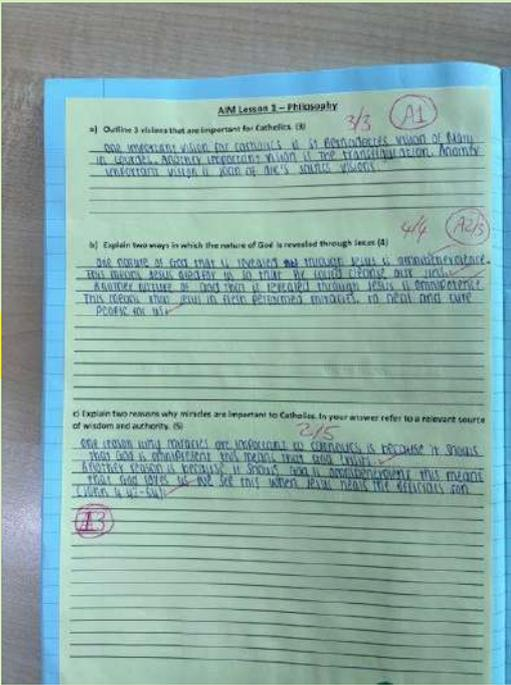 AIM Lesson 1 – Philosophy
3/3 A1
a) Outline 3 visions that are important for Catholics. (3)
one important vision for catholics is St Bernadette's vision of Mary
in Lourdes. Another important vision is the transfiguration. Another
important vision is Joan of Arc's saints visions.
4/4 A2/3
b) Explain two ways in which the nature of God is revealed through Jesus (4)
one nature of God that is revealed through Jesus is omnibenevolence.
This means Jesus died for us so that he could cleanse our sins.
Another nature of God that is revealed through Jesus is omnipotence.
This means that Jesus in flesh performed miracles, to heal and cure
people for us.
c) Explain two reasons why miracles are important to Catholics. In your answer refer to a relevant source
of wisdom and authority. (5)
2/5
one reason why miracles are important to catholics is because it shows
that God is omnipresent this means that God
Another reason is because it shows God is omnibenevolent this means
that God loves us we see this when Jesus heals the officials son
(John 4